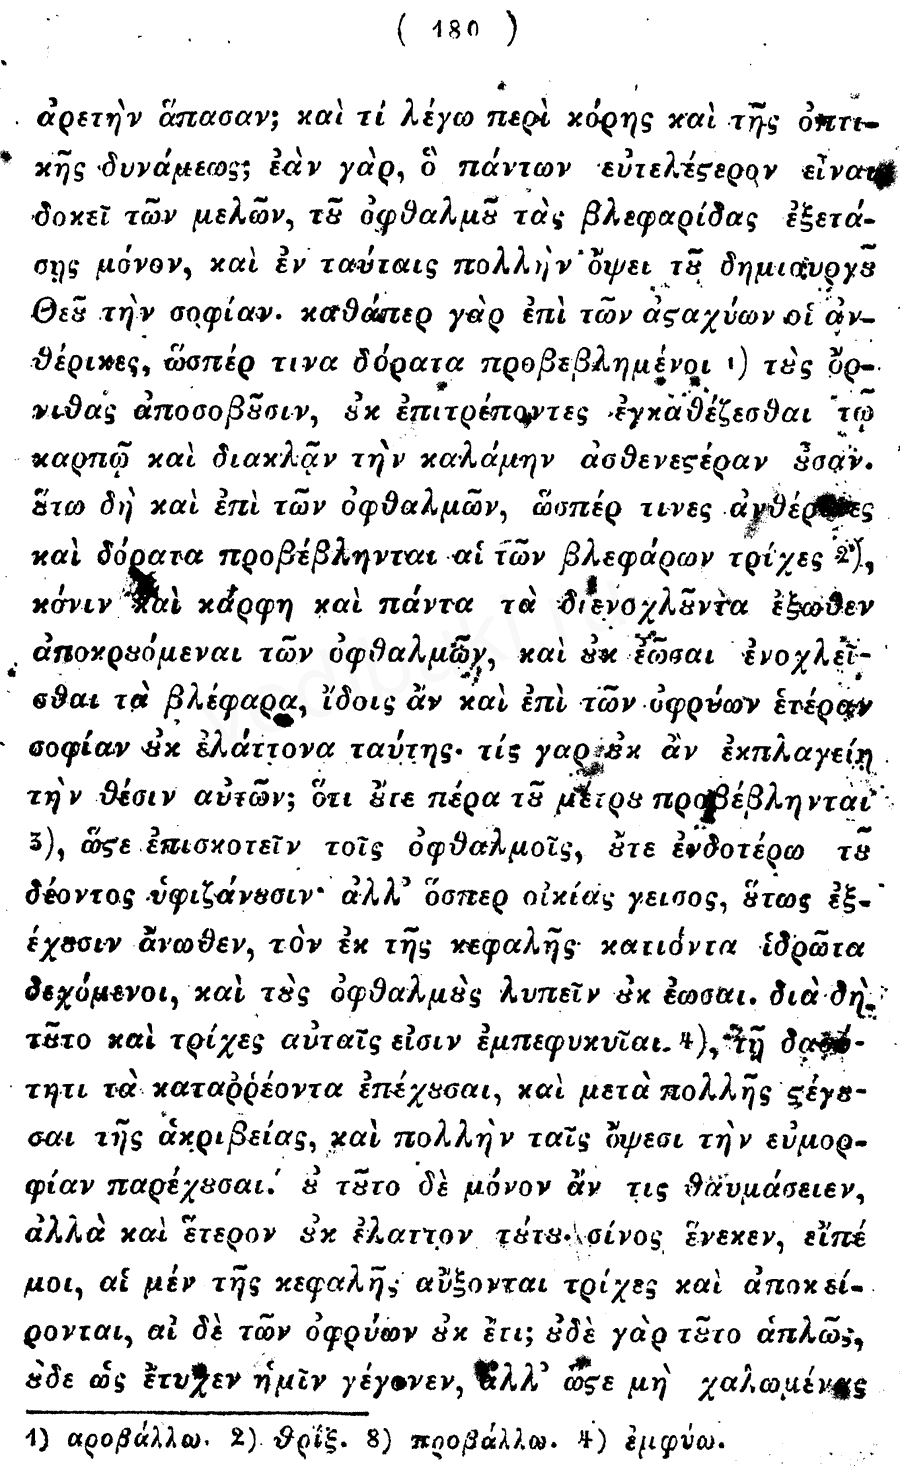 ( 180 )
ἀρετὴν ἅπασαν; καὶ τί λέγω περὶ κόρης καὶ τῆς ὀπτι-
κῆς δυνάμεως; ἐὰν γὰρ, ὃ πάντων εὐτελέϛερον εἶναι
δοκεῖ τῶν μελῶν, τȣ͂ ὀφθαλμȣ͂ τὰς βλεφαρίδας ἐξετά-
σῃς μόνον, καὶ ἐν ταύταις πολλὴν ὄψει τȣ͂ δημιαυργȣ͂
Θεȣ͂ τὴν σοφίαν. καθάπερ γὰρ ἐπὶ τῶν ἀϛαχύων οἱ ἀν-
θέρικες, ὥσπέρ τινα δόρατα προβεβλημένοι 1) τȣ̀ς ὄρ-
νιθας ἀποσοβȣ͂σιν, ȣ̓κ ἐπιτρέποντες ἐγκαθέζεσθαι τῷ
καρπῷ καὶ διακλᾷν τὴν καλάμην ἀσθενεϛέραν ȣ̓͂σαν.
ȣ̔́τω δὴ καὶ ἐπὶ τῶν ὀφθαλμῶν, ὥσπέρ τινες ἀνθέρικες
καὶ δόρατα προβέβληνται αἱ τῶν βλεφάρων τρίχες 2),
κόνιν καὶ κάρφη καὶ πάντα τὰ διενοχλȣ͂ντα ἔξωθεν
ἀποκρȣόμεναι τῶν ὀφθαλμῶν, καὶ ȣ̓κ ἐῶσαι ἐνοχλεῖ-
σθαι τὰ βλέφαρα, ἴδοις ἂν καὶ ἐπὶ τῶν ὀφρύων ἑτέραν
σοφίαν ȣ̓κ ἐλάττονα ταύτης· τίς γαρ ȣ̓κ ἂν ἐκπλαγείη
τὴν θέσιν αὐτῶν; ὅτι ȣ̓́τε πέρα τȣ͂ μέτρȣ προβέβληνται
3), ὥϛε ἐπισκοτεῖν τοῖς ὀφθαλμοῖς, ȣ̓́τε ἐνδοτέρω τȣ͂
δέοντος ὑφιζάνȣσιν· ἀλλ’ ὅσπερ οἰκίας γεισος, ȣ̔́τως ἐξ-
έχȣσιν ἄνωθεν, τὸν ἐκ τῆς κεφαλῆς κατιόντα ἱδρῶτα
δεχόμενοι, καὶ τȣ̀ς ὀφθαλμȣ̀ς λυπεῖν ȣ̓κ ἐωσαι. διὰ δὴ
τȣ͂το καὶ τρίχες αὐταῖς εἰσιν ἐμπεφυκυῖαι. 4), τῇ δασύ-
τητι τὰ καταῤῥέοντα ἐπέχȣσαι, καὶ μετὰ πολλῆς ϛέγȣ-
σαι τῆς ἀκριβείας, καὶ πολλὴν ταῖς ὄψεσι τὴν εὐμορ-
φίαν παρέχȣσαι. ȣ̓ τȣ͂το δὲ μόνον ἄν τις θαυμάσειεν,
ἀλλὰ καὶ ἕτερον ȣ̓κ ἐλαττον τȣ́τȣ· σίνος ἕνεκεν, εἴπέ
μοι, αἱ μέν τῆς κεφαλῆς αὔξονται τρίχες καὶ ἀποκεί-
ρονται, αἱ δὲ τῶν ὀφρύων ȣ̓κ ἔτι; ȣ̓δὲ γὰρ τȣ͂το ἁπλῶς,
ȣ̓̀δε ὡς ἔτυχεν ἡμῖν γέγονεν, ἀλλ’ ὥϛε μὴ χαλωμένας
1) αροβάλλω. 2) θρίξ. 3) προβάλλω. 4) ἐμφύω.